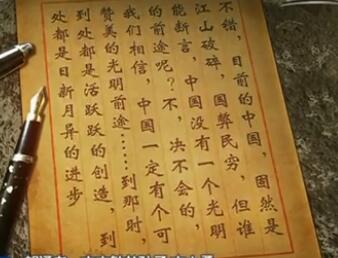 不错，目前的中国，固然是
江山破碎，国弊民穷，但谁
能断言，中国没有一个光明
的前途呢？不，决不会的，
我们相信，中国一定有个可
赞美的光明前途……到那时，
到处都是活跃跃的创造，到
处都是日新月异的进步